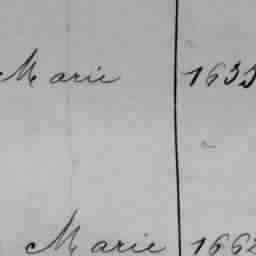 Marie 1635
Marie 1662